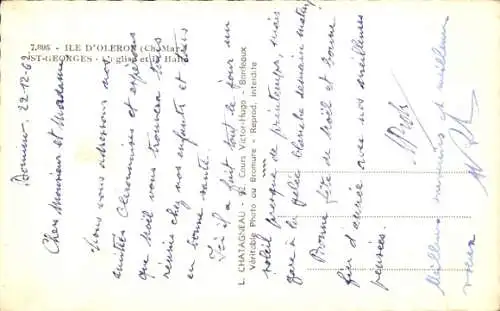 7.806 - ILE D'OLERON (Ch.-Mar.)
ST-GEORGES - L'église et la Halle
L. CHATAGNEAU - 92, Cours Victor-Hugo - Bordeaux
Véritable Photo au Bromure - Reprod. interdite
22-12-62
Cher Monsieur et Madame
Nous vous adressons nos
amitiés Oleronaises et espérons
que Noël vous trouvera tous
réunis chez nos enfants et tous
en bonne santé.
Ici il a fait tout le jour un
soleil presque de printemps, mais
gare à la gelée blanche demain matin
Bonne fête de Noël et bonne
fin d'année avec nos meilleures
pensées.
Meilleurs souvenirs et meilleurs
voeux